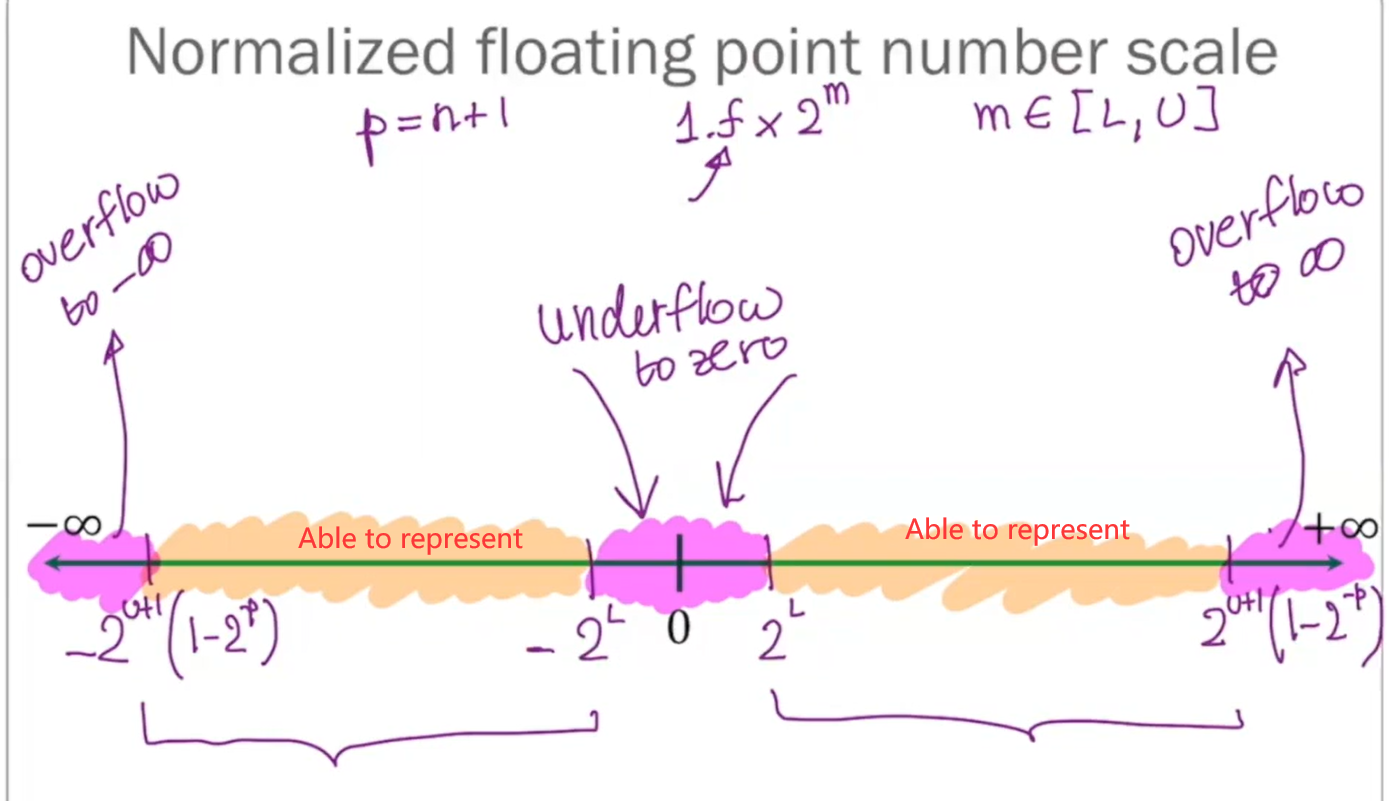 Normalized floating point number scale
p=n+1
1.f × 2^m
m ∈ [L, U]
overflow
to -∞
overflow
to ∞
underflow
to zero
−∞
Able to represent
Able to represent
+∞
-2^{U+1}(1-2^{-p})
-2^L
0
2^L
2^{U+1}(1-2^{-p})